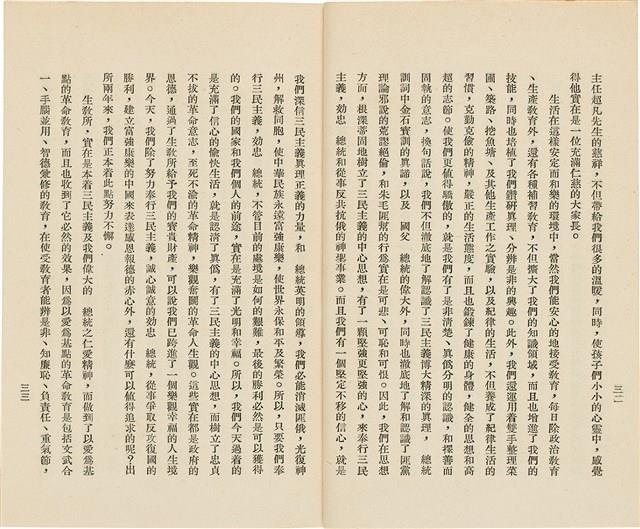 主任超凡先生的慈祥，不但帶給我們很多的溫暖，同時，使孩子們小小的心靈中，感覺
得他實在是一位充滿仁慈的大家長。
生活在這樣安定而和樂的環境中，當然我們能安心的地接受教育，每日除政治教育
、生產教育外，還有各種補習教育，不但擴大了我們的知識領域，而且也增進了我們的
技能，同時也培植了我們鑽研真理、分辨是非的興趣。此外，我們還運用着雙手整理菜
圃、築路、挖魚塘、及其他生產工作之實驗，以及紀律的生活，不但養成了紀律生活的
習慣，克勤克儉的精神，嚴正的生活態度，而且也鍛鍊了健康的身體，健全的思想和高
超的志節。使我們更值得驕傲的，就是我們有了是非清楚、真僞分明的認識，和擇善而
固執的意志，換句話說，我們不但澈底地了解認識了三民主義博大精深的真理，　總統
訓詞中金石寶訓的真諦，以及　國父　總統的偉大外，同時也澈底地了解和認識了匪黨
理論邪說的荒謬絕倫，和朱毛匪幫的行爲實在是可悲、可恥和可恨。因此，我們在思想
方面，根深蒂固地樹立了三民主義的中心思想，有了一顆堅強更堅強的心，來奉行三民
主義，効忠　總統和從事反共抗俄的神聖事業。而且我們有一個堅定不移的信心，就是
三二
我們深信三民主義真理正義的力量，和　總統英明的領導，我們必能消滅匪俄，光復神
州，解救同胞，使中華民族永遠富強康樂，使世界永保和平及繁榮。所以，只要我們奉
行三民主義，効忠　總統，不管目前的處境是如何的艱難，最後的勝利必然是可以獲得
的。我們的國家和我們個人的前途，實在是充滿了光明和幸福。所以，我們今天過着的
是充滿了信心的愉快生活，就是認清了真僞，有了三民主義的中心思想，而樹立了忠貞
不拔的革命意志，至死不渝的革命精神，樂觀奮鬪的革命人生觀。這些實在都是政府的
恩德，通過了生教所給予我們的寶貴財產，可以說我們已跨進了一個樂觀幸福的人生境
界。今天，我們除了努力奉行三民主義，誠心誠意的効忠　總統，從事爭取反攻復國的
勝利，建立富強康樂的中國來表達感恩報德的赤心外，還有什麼可以值得追求的呢？出
所兩年來，我們正本着此點努力不懈。
生教所，實在是本着三民主義及我們偉大的　總統之仁愛精神，而做到了以愛爲基
點的革命教育，而且也收到了它必然的效果，因爲以愛爲基點的革命教育是包括文武合
一、手腦並用、智德彙修的教育，在使受教育者能辨是非、知廉恥、負責任、重氣節，
三三